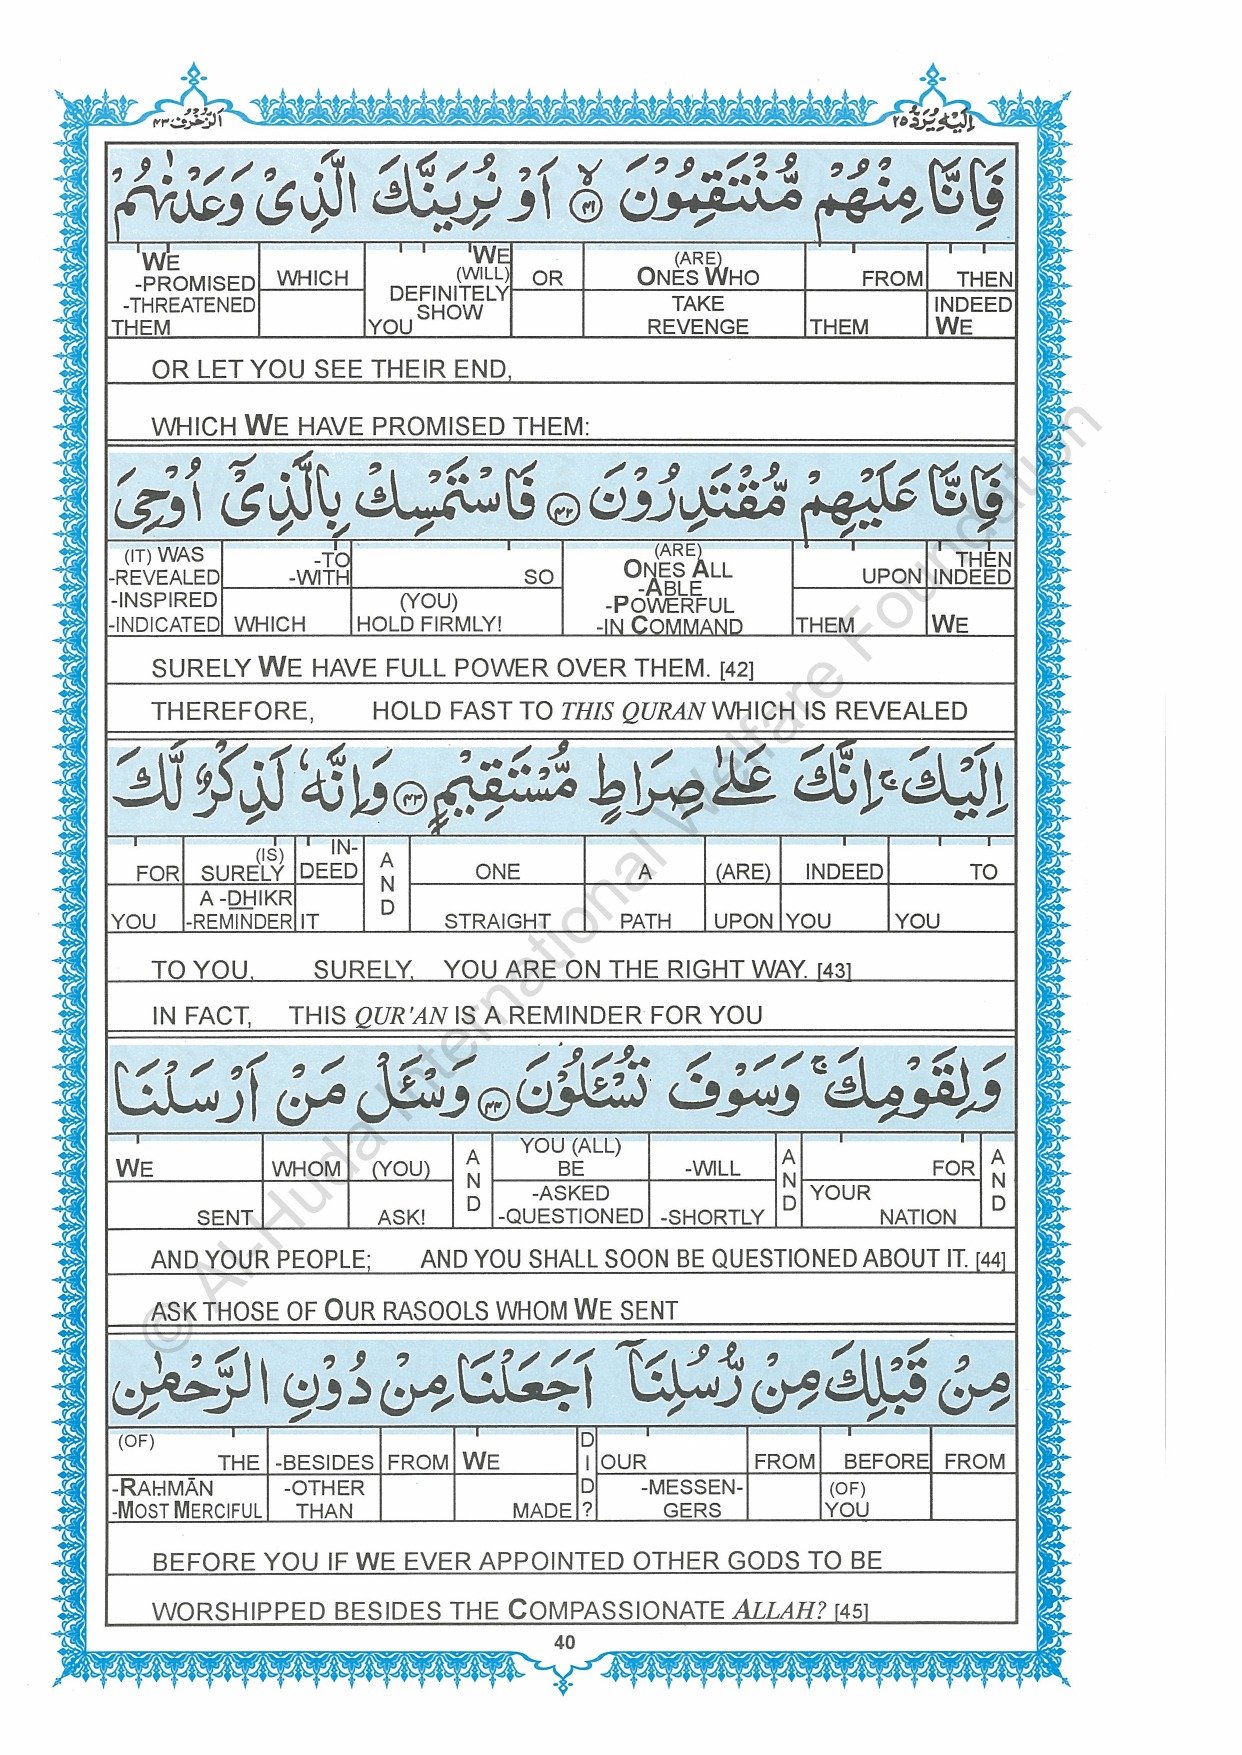 اَلزُّخْرُف ٤٣ اِلَيْهِ يُرَدُّ ٢٥
فَاِنَّا مِنْهُمْ مُّنْتَقِمُوْنَ ۙ﴿٤١﴾ اَوْ نُرِيَنَّكَ الَّذِىْ وَعَدْنٰهُمْ
WE -PROMISED -THREATENED THEM | WHICH | WE (WILL) DEFINITELY SHOW YOU | OR | (ARE) ONES WHO TAKE REVENGE | FROM THEM | THEN INDEED WE
OR LET YOU SEE THEIR END,
WHICH WE HAVE PROMISED THEM:
فَاِنَّا عَلَيْهِمْ مُّقْتَدِرُوْنَ ﴿٤٢﴾ فَاسْتَمْسِكْ بِالَّذِىْۤ اُوْحِىَ
(IT) WAS -REVEALED -INSPIRED -INDICATED | -TO -WITH WHICH | SO (YOU) HOLD FIRMLY! | (ARE) ONES ALL -ABLE -POWERFUL -IN COMMAND | UPON THEM | THEN INDEED WE
SURELY WE HAVE FULL POWER OVER THEM. [42]
THEREFORE, HOLD FAST TO THIS QURAN WHICH IS REVEALED
اِلَيْكَ ۚ اِنَّكَ عَلٰى صِرَاطٍ مُّسْتَقِيْمٍ ﴿٤٣﴾ وَاِنَّهٗ لَذِكْرٌ لَّكَ
FOR YOU | (IS) SURELY A -DHIKR -REMINDER | IN-DEED IT | AND | ONE STRAIGHT | A PATH | (ARE) UPON | INDEED YOU | TO YOU
TO YOU, SURELY, YOU ARE ON THE RIGHT WAY. [43]
IN FACT, THIS QUR'AN IS A REMINDER FOR YOU
وَلِقَوْمِكَ ۚ وَسَوْفَ تُسْئَلُوْنَ ﴿٤٤﴾ وَسْئَلْ مَنْ اَرْسَلْنَا
WE SENT | WHOM | (YOU) ASK! | AND | YOU (ALL) BE -ASKED -QUESTIONED | -WILL -SHORTLY | AND | FOR YOUR NATION | AND
AND YOUR PEOPLE; AND YOU SHALL SOON BE QUESTIONED ABOUT IT. [44]
ASK THOSE OF OUR RASOOLS WHOM WE SENT
مِنْ قَبْلِكَ مِنْ رُّسُلِنَاۤ اَجَعَلْنَا مِنْ دُوْنِ الرَّحْمٰنِ
(OF) THE -RAHMĀN -MOST MERCIFUL | -BESIDES -OTHER THAN | FROM | WE MADE | DID? | OUR -MESSEN-GERS | FROM | BEFORE (OF) YOU | FROM
BEFORE YOU IF WE EVER APPOINTED OTHER GODS TO BE
WORSHIPPED BESIDES THE COMPASSIONATE ALLAH? [45]
40
© Al-Huda International Welfare Foundation